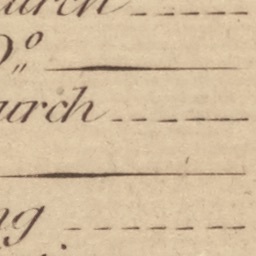 urch
Dº
urch
ng